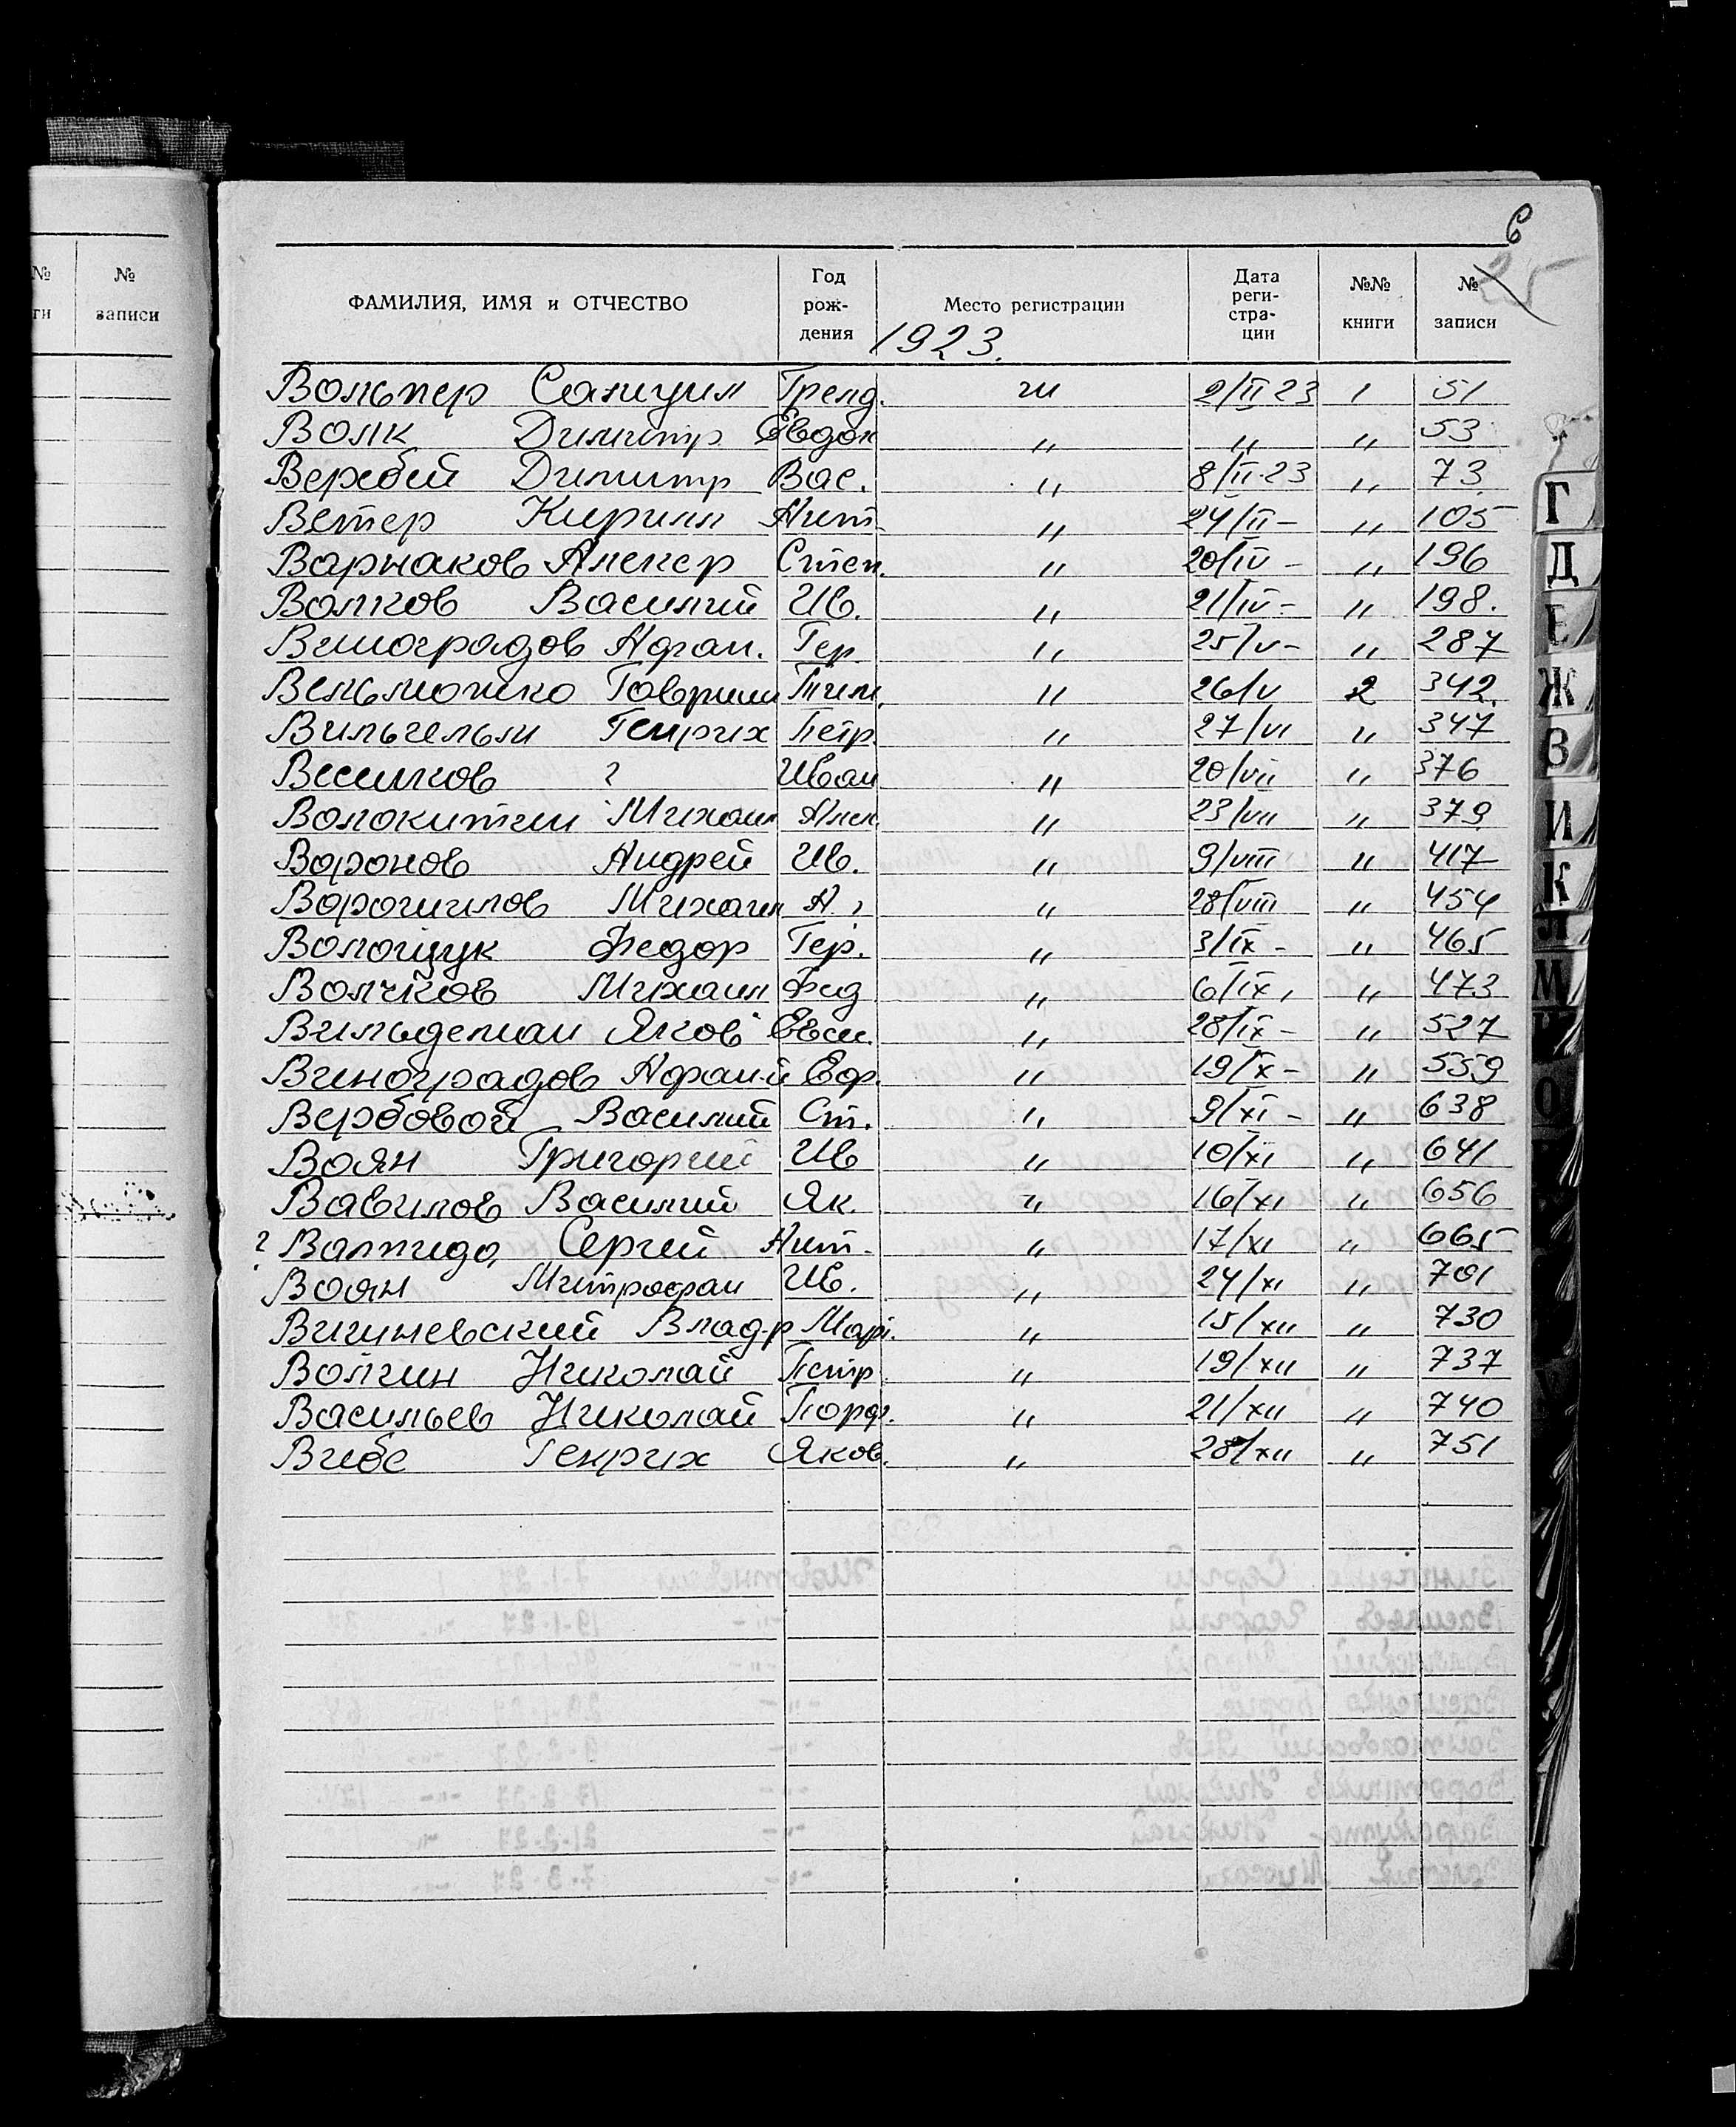 6
25
№ ги № записи
ФАМИЛИЯ, ИМЯ и ОТЧЕСТВО Год рождения Место регистрации Дата реги-стра-ции №№ книги № записи
1923.
Вольпер Самуил Гренд. 2/II 23 1 51
Волк Димитр Евдок " " " 53
Вербий Димитр Вас. " 8/II-23 " 73
Ветер Кирилл Ант. " 24/II – " 105
Варнаков Алекср Степ. " 20/IV – " 196
Волков Василий Ив. " 21/IV – " 198.
Виноградов Афан. Гер. " 25/V – " 287
Вельможко Гавриил Тим. " 26/V 2 342
Вильгельм Генрих Петр. " 27/VI " 347
Веселков ? Иван " 20/VII " 376
Волокитин Михаил Алек. " 23/VII " 379
Воронов Андрей Ив. " 9/VIII " 417
Ворошилов Михаил А. " 28/VIII " 454
Волощук Федор Гер. " 3/IX – " 465
Волчков Михаил Фед " 6/IX " 473
Вильдеман Яков Евсе. " 28/IX – " 527
Виноградов Афан-й Еф. " 19/X – " 559
Вербовой Василий Ст. " 9/XI – " 638
Воян Григорий Ив " 10/XI " 641
Вавилов Василий Як. " 16/XI " 656
? Сергей Ант. " 17/XI " 665
Воян Митрофан Ив. " 24/XI " 701
Вишневский Влад-р Мар. " 15/XII " 730
Волгин Николай Петр " 19/XII " 737
Васильев Николай Порф. " 21/XII " 740
Вибе Генрих Яков. " 28/XII " 751
Г
Д
Е
Ж
З
И
К
Л
М
О